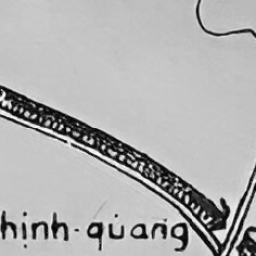 hịnh-quang